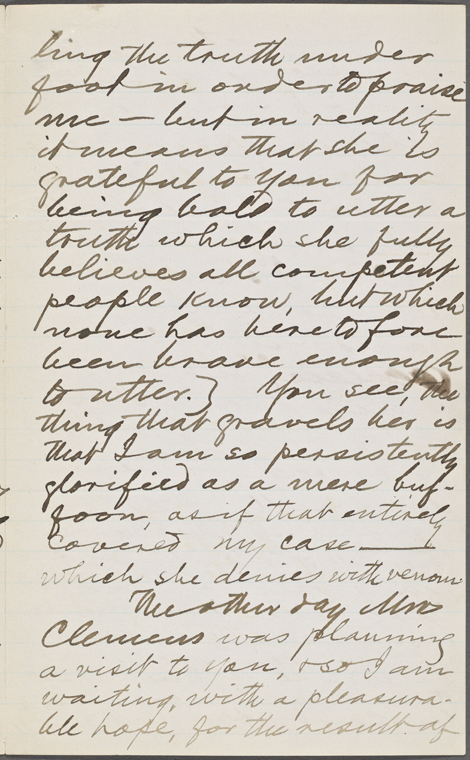 ling the truth under
foot in order to praise
me — but in reality
it means that she is
grateful to you for
being bold to utter a
truth which she fully
believes all competent
people know, but which
none has heretofore
been brave enough
to utter.} You see, the
thing that gravels her is
that I am so persistently
glorified as a mere buf-
foon, as if that entirely
covered my case —
which she denies with venom.
The other day Mrs
Clemens was planning
a visit to you, & so I am
waiting, with a pleasura-
ble hope, for the result of